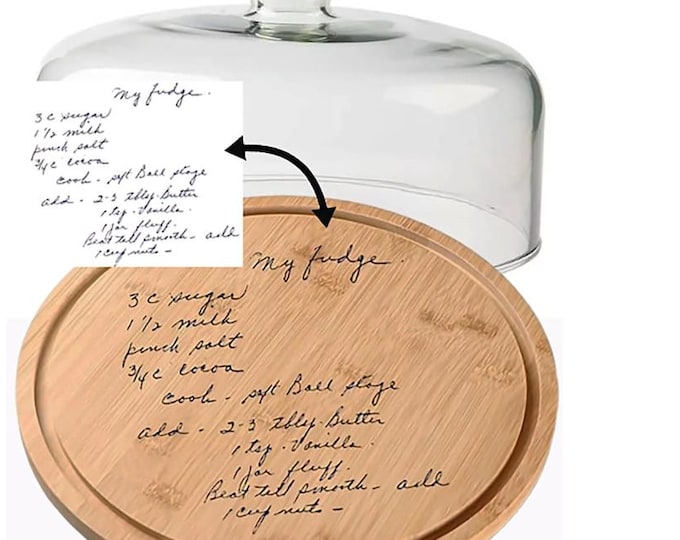 My fudge.
3 c sugar
1 1/2 milk
pinch salt
3/4 c cocoa
cook - soft Ball stage
add - 2-3 tbls. Butter
1 tsp. Vanilla.
1 jar fluff.
Beat till smooth - add
1 cup nuts -
My fudge.
3 c sugar
1 1/2 milk
pinch salt
3/4 c cocoa
cook - soft Ball stage
add - 2-3 tbls. Butter
1 tsp. Vanilla.
1 jar fluff.
Beat till smooth - add
1 cup nuts -